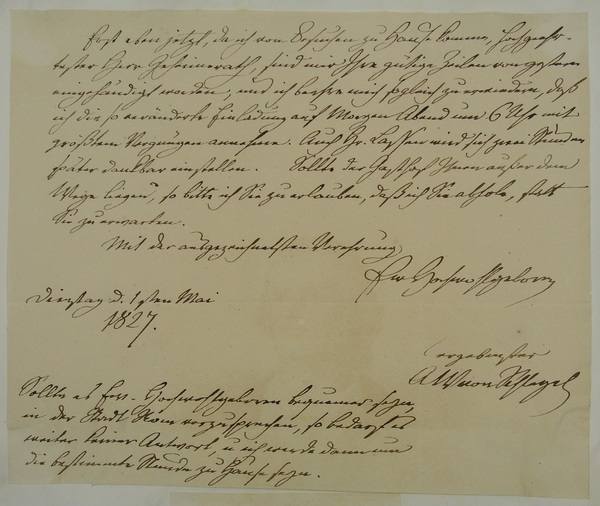 Erst eben jetzt, da ich von Besuchen zu Hause komme, hochgeehr-
tester Herr Geheimerath, sind mir Ihre gütige Zeilen von gestern
eingehändigt worden, und ich beeile mich sogleich zu erwiedern, daß
ich die so veränderte Einladung auf Morgen Abend um 6 Uhr mit
größtem Vergnügen annehme. Auch Hr. Lassen wird sich zwei Stunden
später dankbar einstellen. Sollte der Gasthof Ihnen außer dem
Wege liegen, so bitte ich Sie zu erlauben, daß ich Sie abhole, statt
Sie zu erwarten.
Mit der ausgezeichnetsten Verehrung
Ew Hochwohlgeboren
Dienstag d. 1sten Mai
1827.
ergebenster
AWvon Schlegel
Sollte es Ew. Hochwohlgeboren bequemer seyn,
in der Stadt vorzusprechen, so bedarf es
weiter keiner Antwort, u ich werde dann um
die bestimmte Stunde zu Hause seyn.